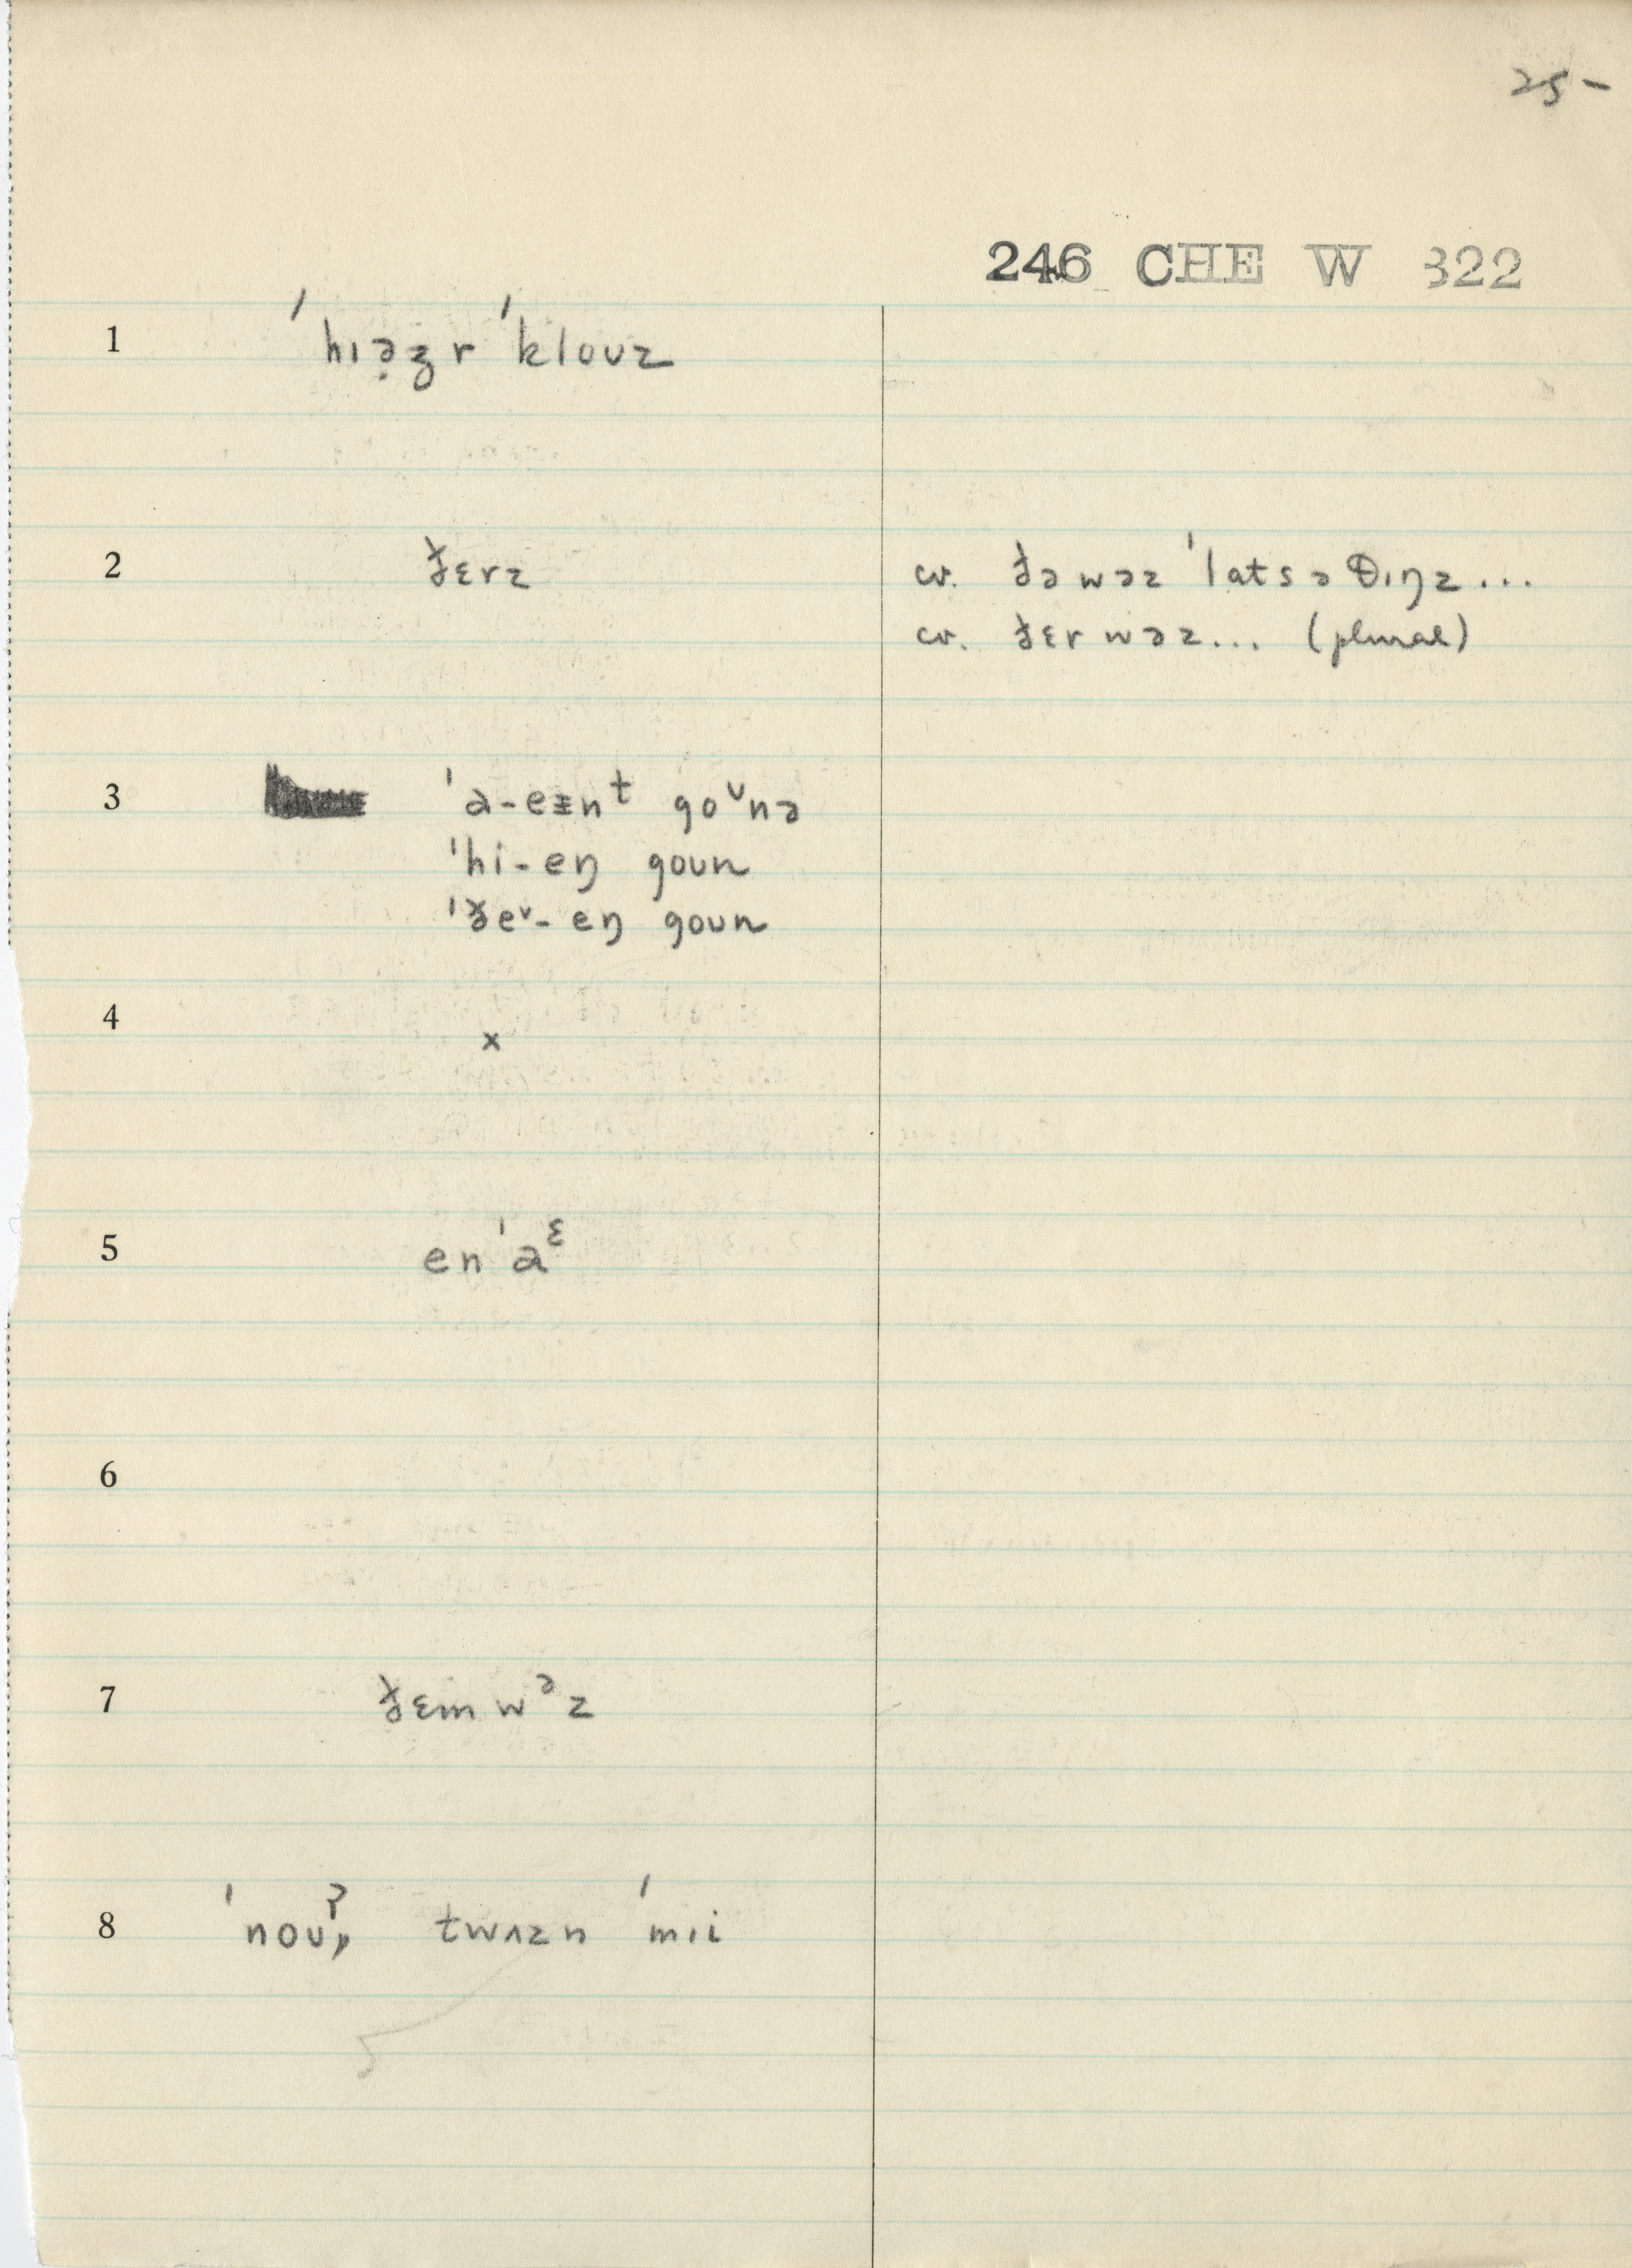 25-
246 CHE W 322
1 ˈhɪə̣ʒr ˈkloʊz
2 ð̵ɛrz cv. ðəwəz ˈlatsəθɪŋz...
cv. ðɛrwəz... (plural)
3 ˈa-eɪnᵗ goᶷnə
ˈhi-eŋ goun
ˈðeᵛ-eŋ goun
4 x
5 enˈaᵋ
6
7 ðɛmwᵊz
8 ˈnoʊ, twʌzn ˈmɪi